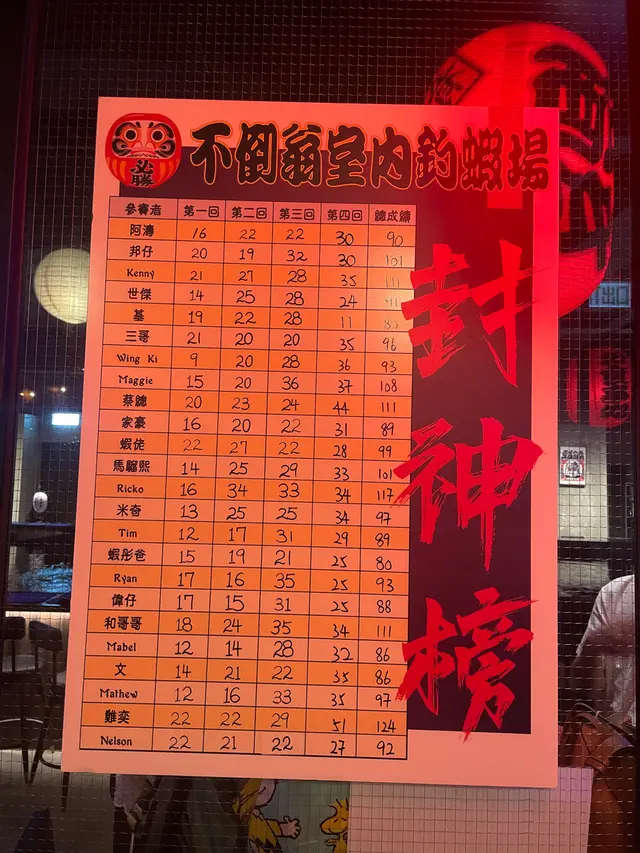 必勝
不倒翁室內釣蝦場
參賽者 第一回 第二回 第三回 第四回 總成績
阿濤 16 22 22 30 90
邦仔 20 19 32 30 101
Kenny 21 27 28 35 111
世傑 14 25 28 24 91
基 19 22 28 11 80
三哥 21 20 20 35 96
Wing Ki 9 20 28 36 93
Maggie 15 20 36 37 108
蔡總 20 23 24 44 111
家豪 16 20 22 31 89
蝦佬 22 27 22 28 99
馬騮熙 14 25 29 33 101
Ricko 16 34 33 34 117
米奇 13 25 25 34 97
Tim 12 17 31 29 89
蝦彤爸 15 19 21 25 80
Ryan 17 16 35 25 93
偉仔 17 15 31 25 88
和哥哥 18 24 35 34 111
Mabel 12 14 28 32 86
文 14 21 22 35 86
Mathew 12 16 33 35 97
難奕 22 22 29 51 124
Nelson 22 21 22 27 92
封神榜
出口